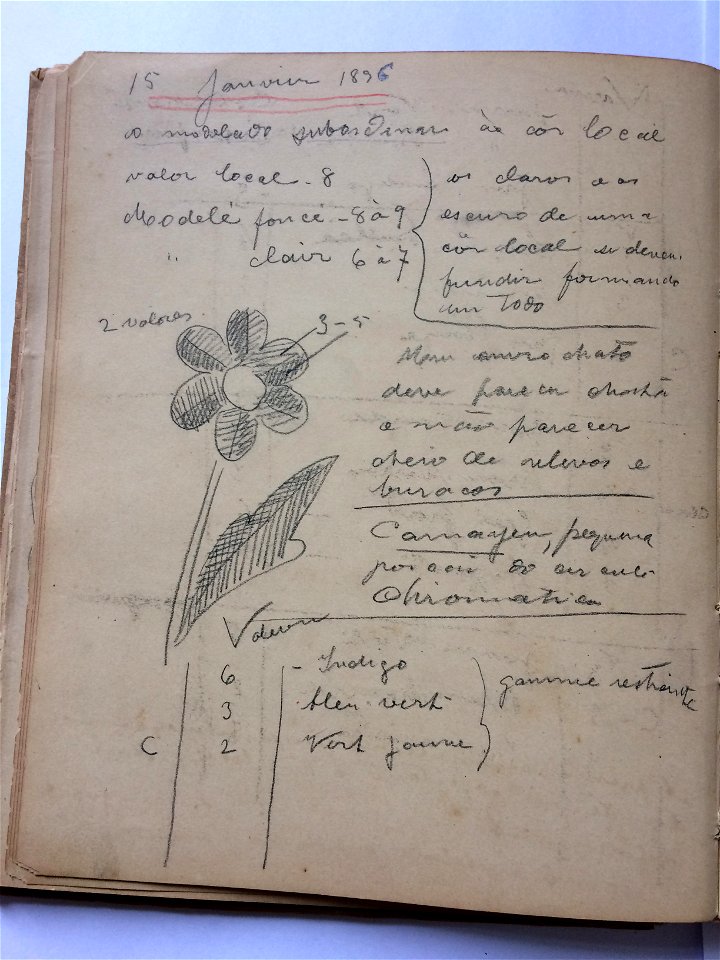 15 Janvier 1896
o modelado subordinar à côr local
valor local - 8
Modelé foncé - 8 à 9
" clair 6 à 7
os claros e os
escuro de uma
côr local se devem
fundir formando
um Todo
2 valores
3-5
Um muro chato
deve parecer chato
e não parecer
cheio de relevos e
buracos
Camayeu, pequena
porção do circulo
Chromatico
Valeur
6 - Indigo
3 bleu vert
C 2 Vert jaune
gamme restreinte